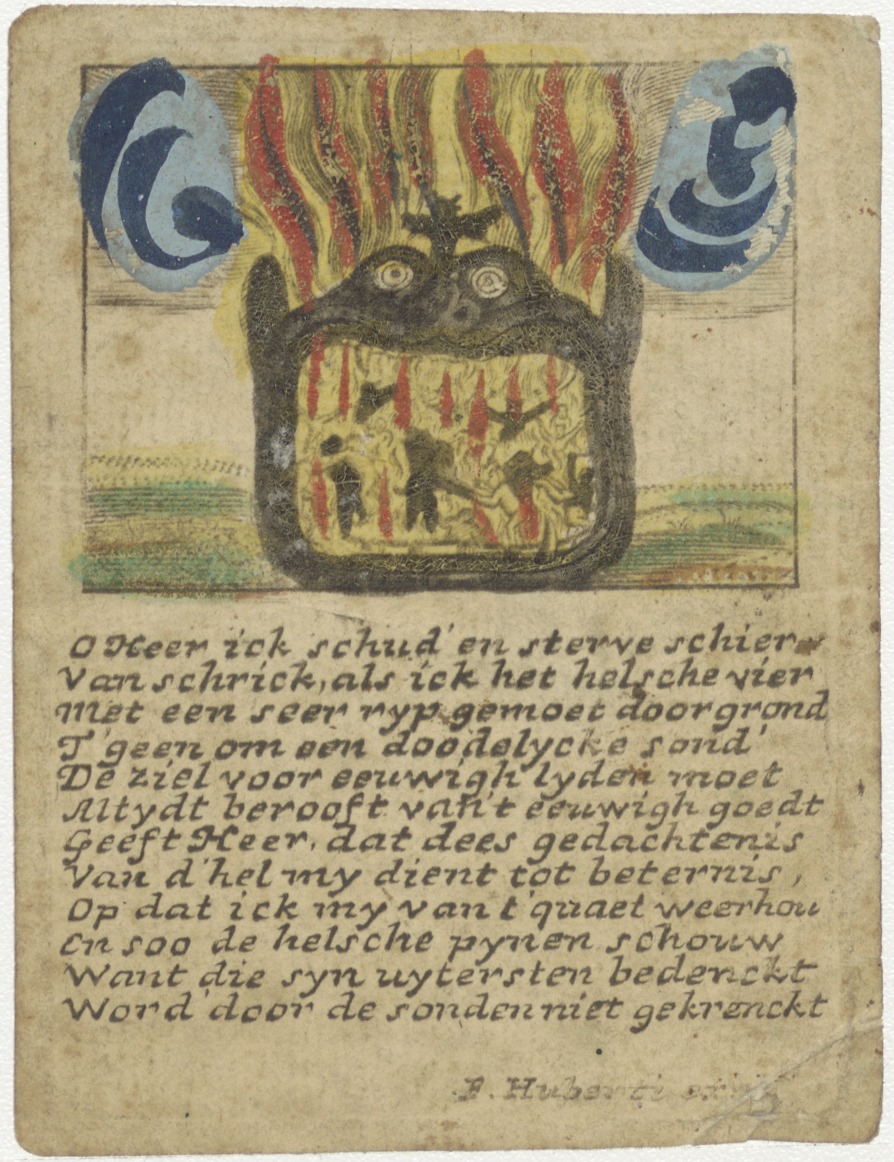 O Heer ick schud' en sterve schier
Van schrick, als ick het helsche vier
Met een seer ryp gemoet doorgrond
T'geen om een doodelycke sond'
De ziel voor eeuwigh lyden moet
Altydt berooft van't eeuwigh goedt
Geeft Heer, dat dees gedachtenis
Van d'hel my dient tot beternis,
Op dat ick my van t'quaet weerhou
En soo de helsche pynen schouw
Want die syn uytersten bedenckt
Word' door de sonden niet gekrenckt
F. Huberti